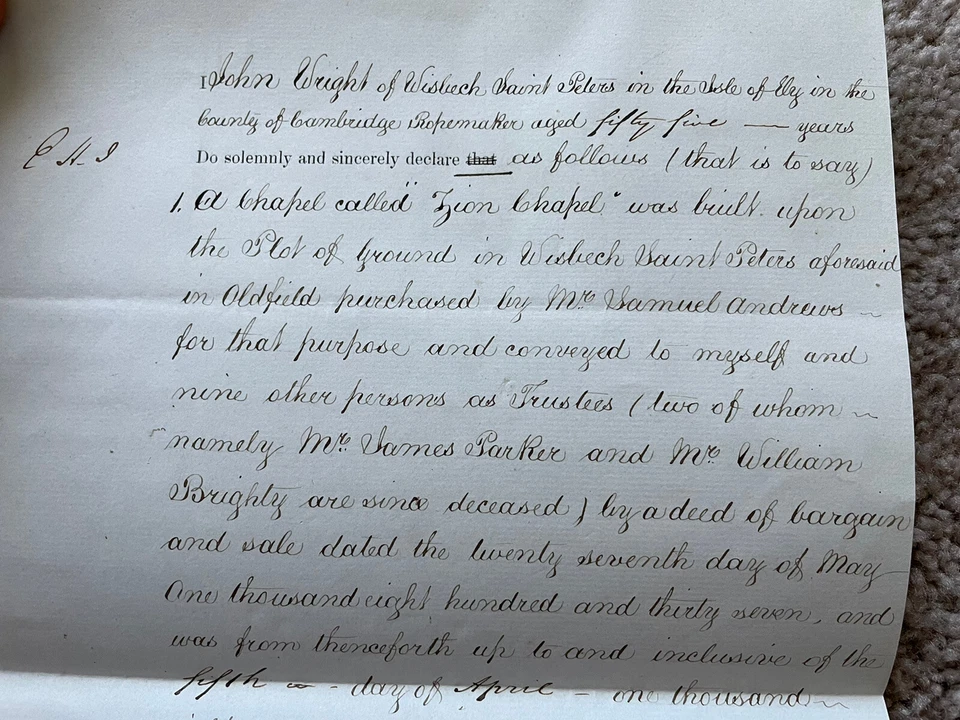 I John Wright of Wisbech Saint Peters in the Isle of Ely in the
County of Cambridge Ropemaker aged fifty five — years
E H J
Do solemnly and sincerely declare that as follows (that is to say)
1. A Chapel called "Zion Chapel" was built upon
the Plot of Ground in Wisbech Saint Peters aforesaid
in Oldfield purchased by Mr. Samuel Andrews
for that purpose and conveyed to myself and
nine other persons as Trustees (two of whom
namely Mr. James Parker and Mr. William
Brighty are since deceased) by a deed of bargain
and sale dated the twenty seventh day of May
One thousand eight hundred and thirty seven, and
was from thenceforth up to and inclusive of the
fifth - day of April - one thousand